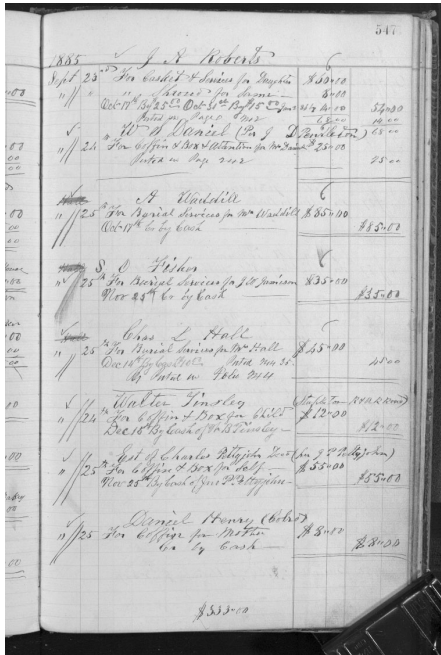 547
1885 J A Roberts
Sept 23rd For Casket & Services for Daughter $60.00
" " " Shroud for Same 8.00
Oct 17th By 25.00 Oct 31st By $15.00 14.00 54.00
Posted on Page 68.00 14.00
W. H. Daniel (Per J D Pendleton) 68.00
" 24 For Coffin & Box & Attention for Mr $25.00
Posted on Page 242 25.00
A Waddill
" 25th For Burial Services for Mrs Waddill $85.00
Oct 17th Cr by Cash $85.00
S. C Fisher
" 25th For Burial Services for J W Jamieson $35.00
Nov 25th Cr by Cash $35.00
Chas L Hall
" 25th For Burial Services for Mr Hall $45.00
Dec 14th By Cash Posted
Posted on Folio 45.00
Walter Tinsley
" 24th For Coffin & Box for Child $12.00
Dec 15th By Cash of Tinsley $12.00
Est of Charles Pettyjohn (per J P Pettyjohn)
" 25th For Coffin & Box for Self $55.00
Nov 25th By Cash of Jno P Pettyjohn $55.00
Daniel Henry (Colrd)
" 25 For Coffin for Mother $8.00
Cr by Cash $8.00
$333.00